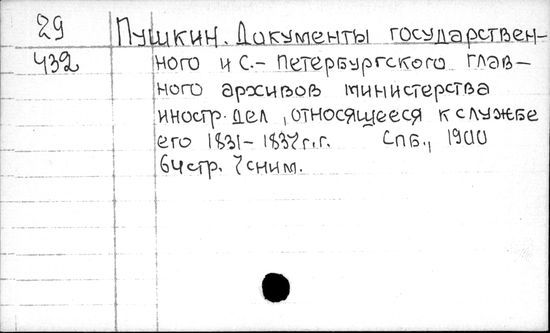 29 Пушкин. Документы государствен-
432 ного и С.- Петербургского глав-
ного архивов министерства
иностр. дел, относящееся к службе
его 1831-1837г.г. Спб., 1900
64стр. 7 сним.